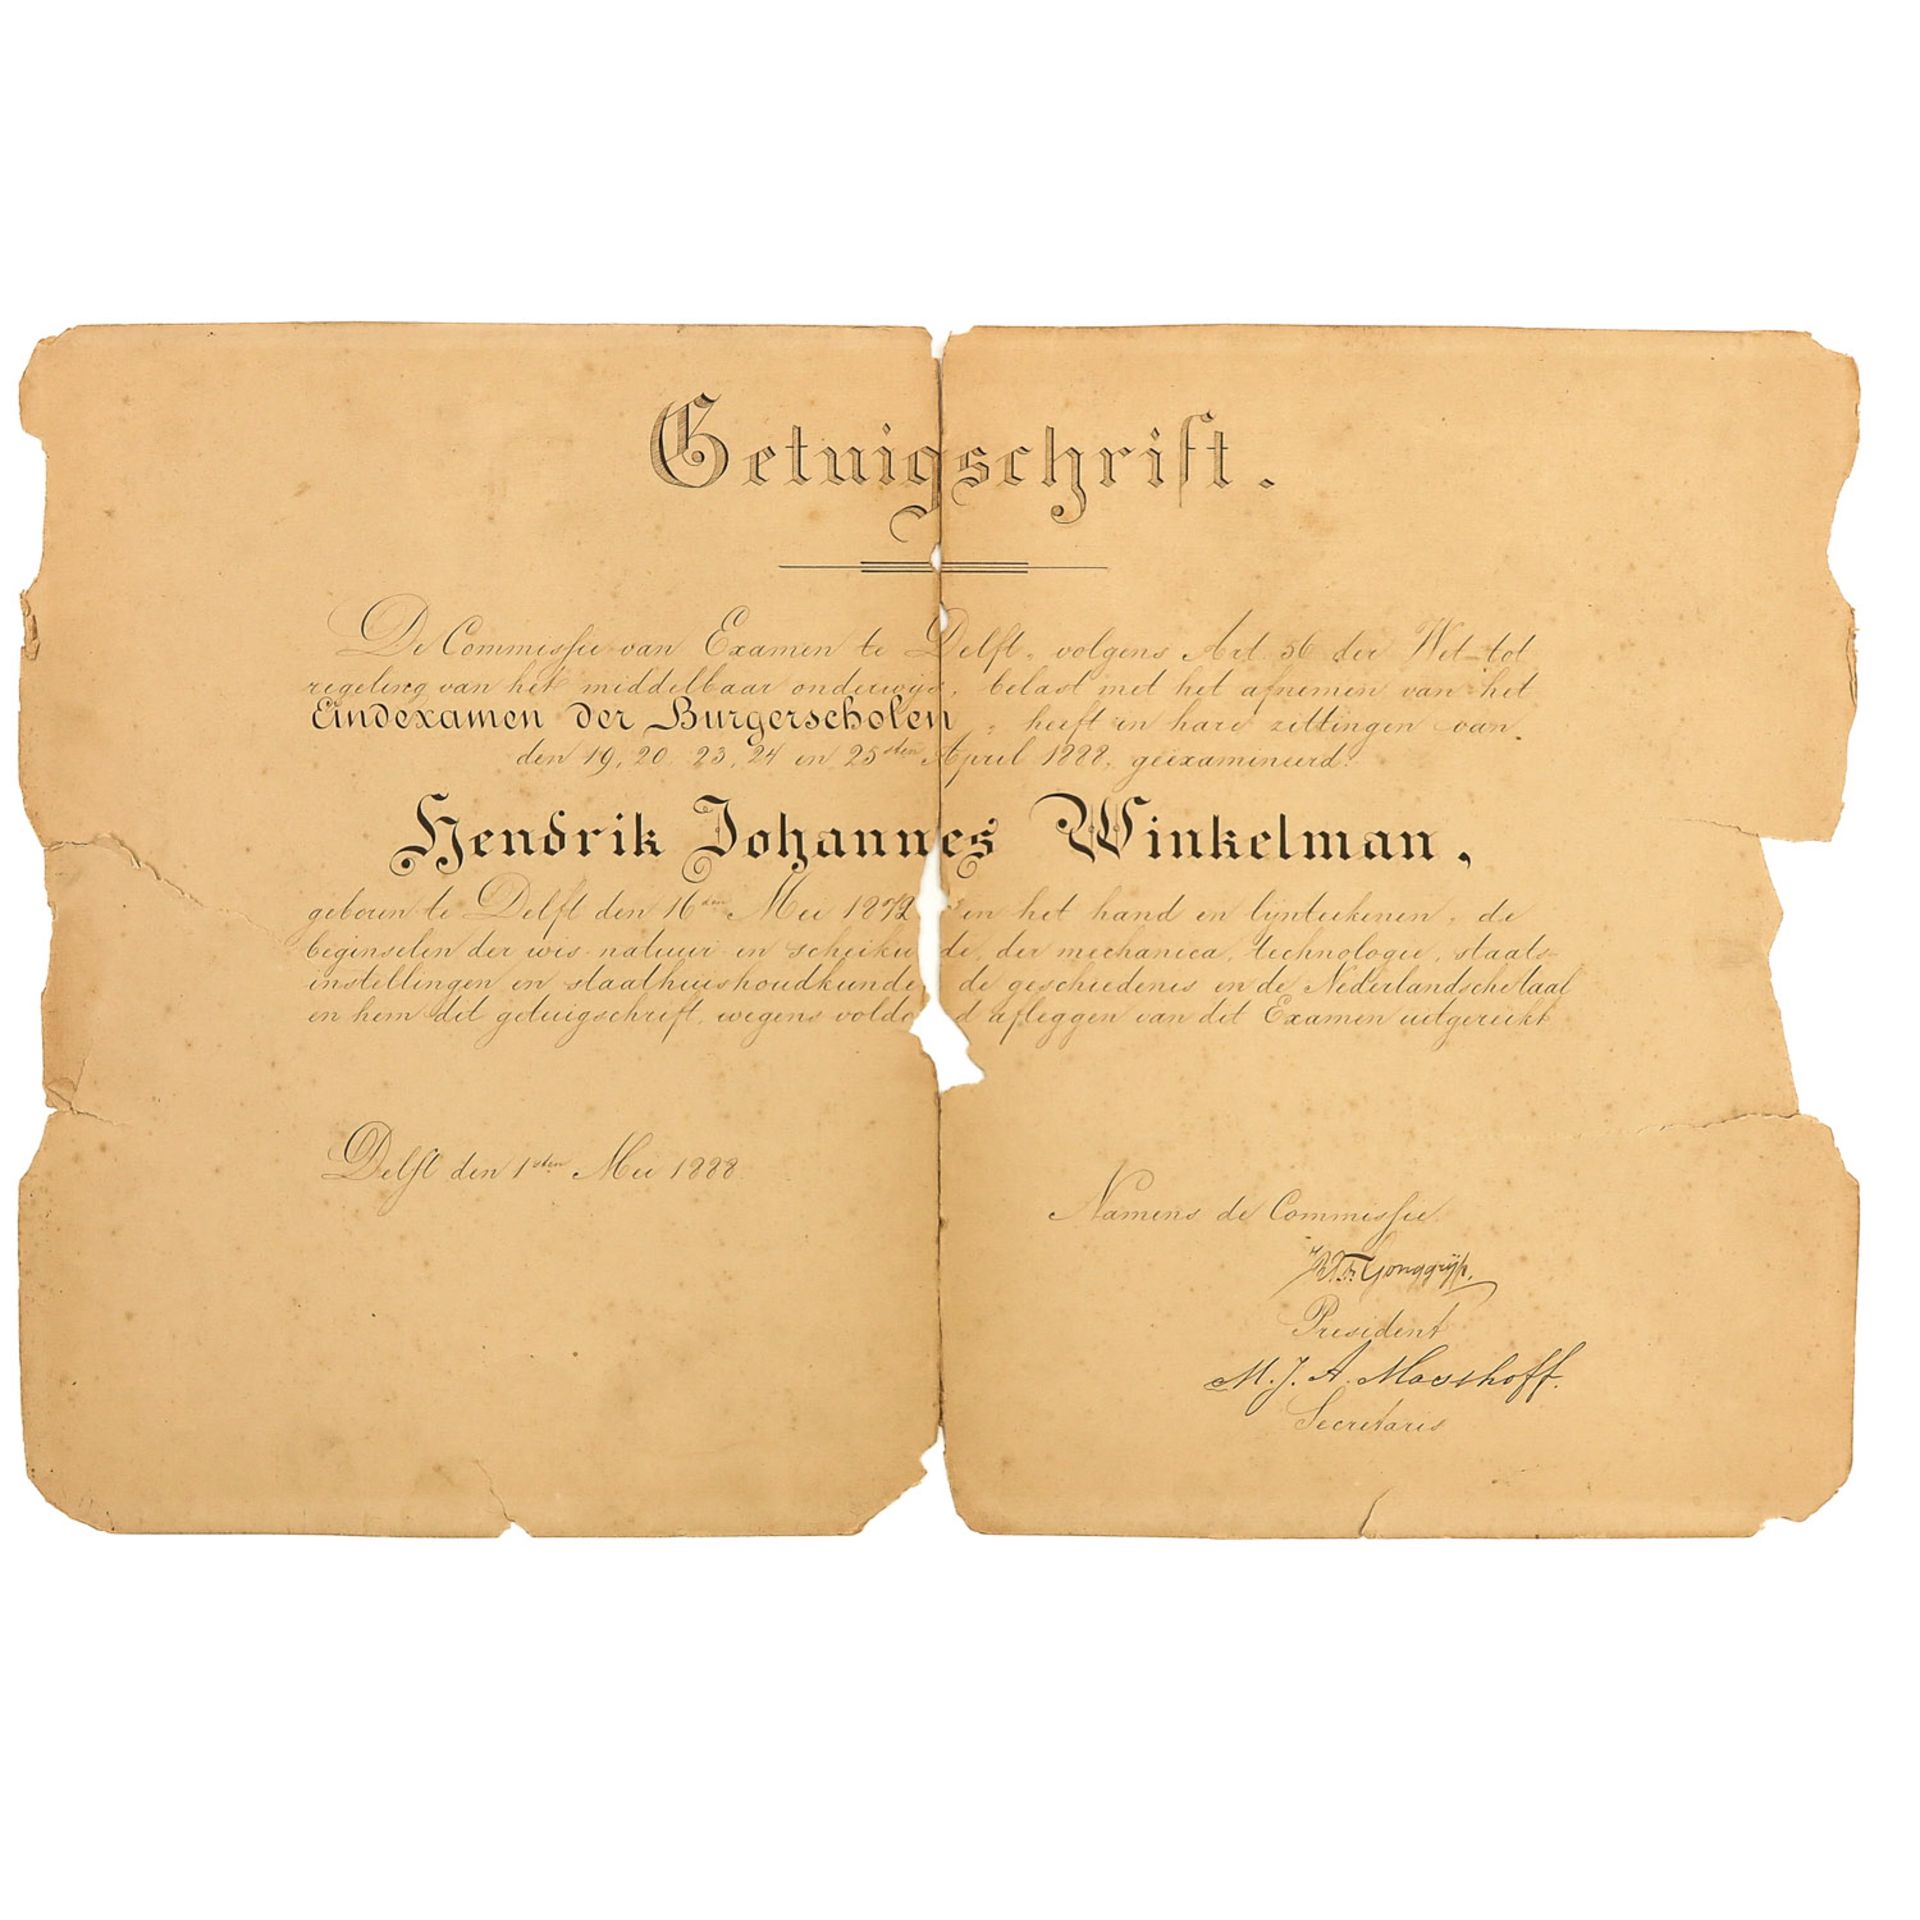 Getuigschrift.
De Commissie van Examen te Delft, volgens Art. 56 der Wet tot
regeling van het middelbaar onderwijs, belast met het afnemen van het
Eindexamen der Burgerscholen, heeft in hare zittingen van
den 19, 20, 23, 24 en 25sten April 1888, geëxamineerd:
Hendrik Johannes Winkelman,
geboren te Delft den 16den Mei 1872 in het hand en lijnteekenen, de
beginselen der wis- natuur- en scheiku de, der mechanica, technologie, staats-
instellingen en staathuishoudkunde de geschiedenis en de Nederlandsche taal
en hem dit getuigschrift, wegens voldo d afleggen van dit Examen uitgereikt
Delft den 1sten Mei 1888.
Namens de Commissie
Gonggrijp.
President
M. J. A. Moesthoff.
Secretaris